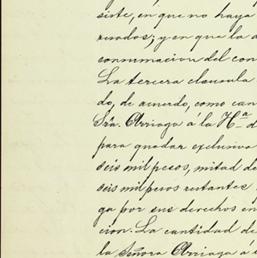 siste, en que no haya
rusados; y en que la a
consumacion del con
La tercera clausula
do, de acuerdo, como can
Sra. Arriaga á la H.ª d
para quedar exclusiva
seis mil pesos, mitad de
seis mil pesos restantes
ga por sus derechos en
cion. La cantidad de
la Señora Arriaga á